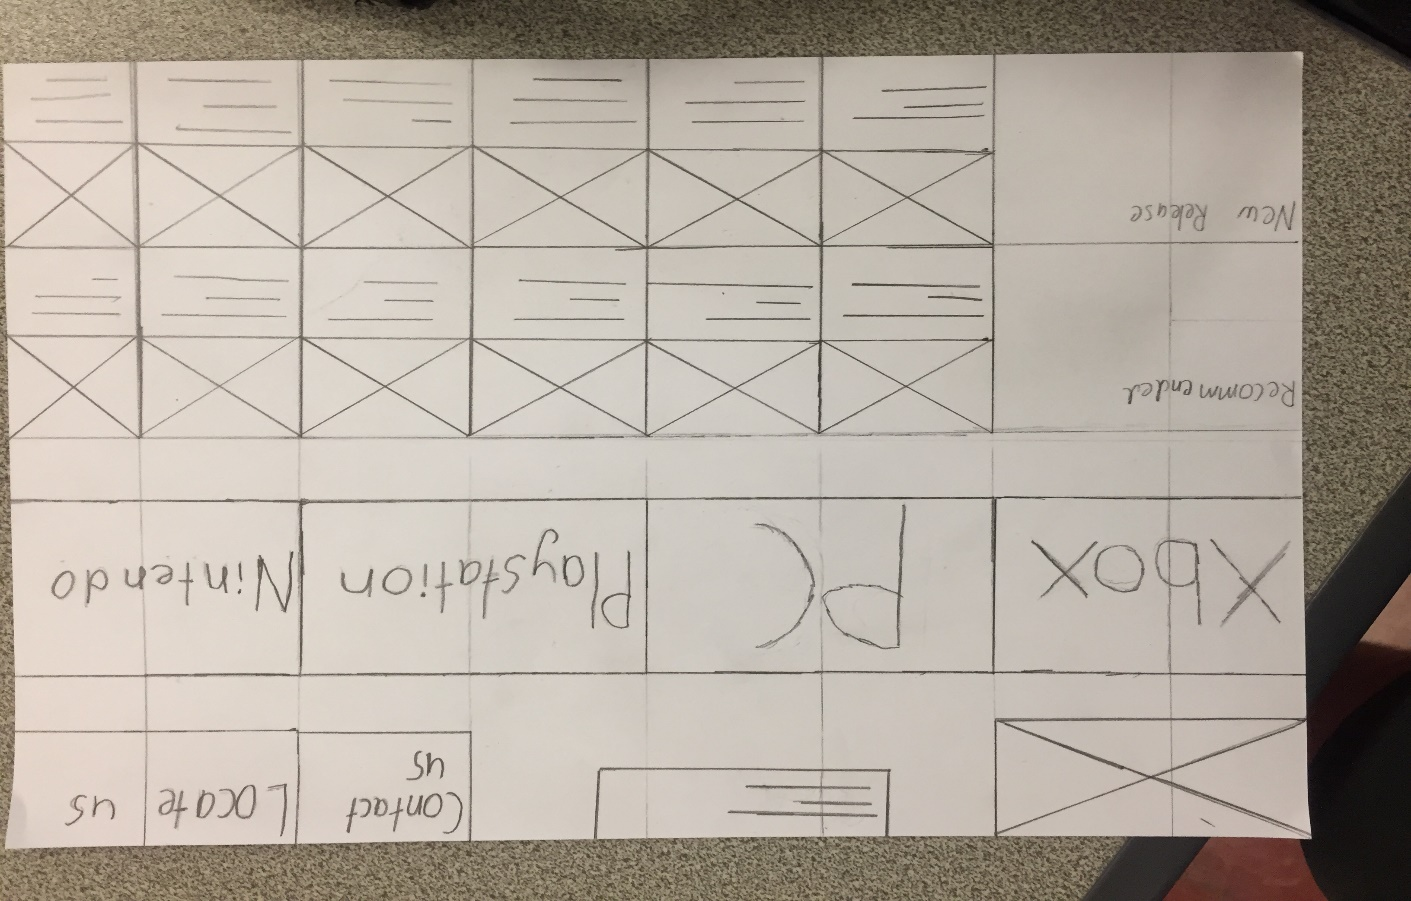 Contact
us
Locate
us
Xbox
PC
Playstation
Nintendo
Recommended
New Release